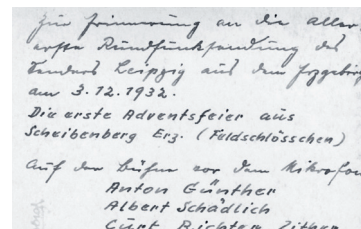 Zur Erinnerung an die aller-
erste Rundfunksendung des
Senders Leipzig aus dem Erzgebirge
am 3.12.1932.
Die erste Adventsfeier aus
Scheibenberg Erz. (Feldschlösschen)
Auf der Bühne vor dem Mikrofon
Anton Günther
Albert Schädlich
Curt Richter Zither